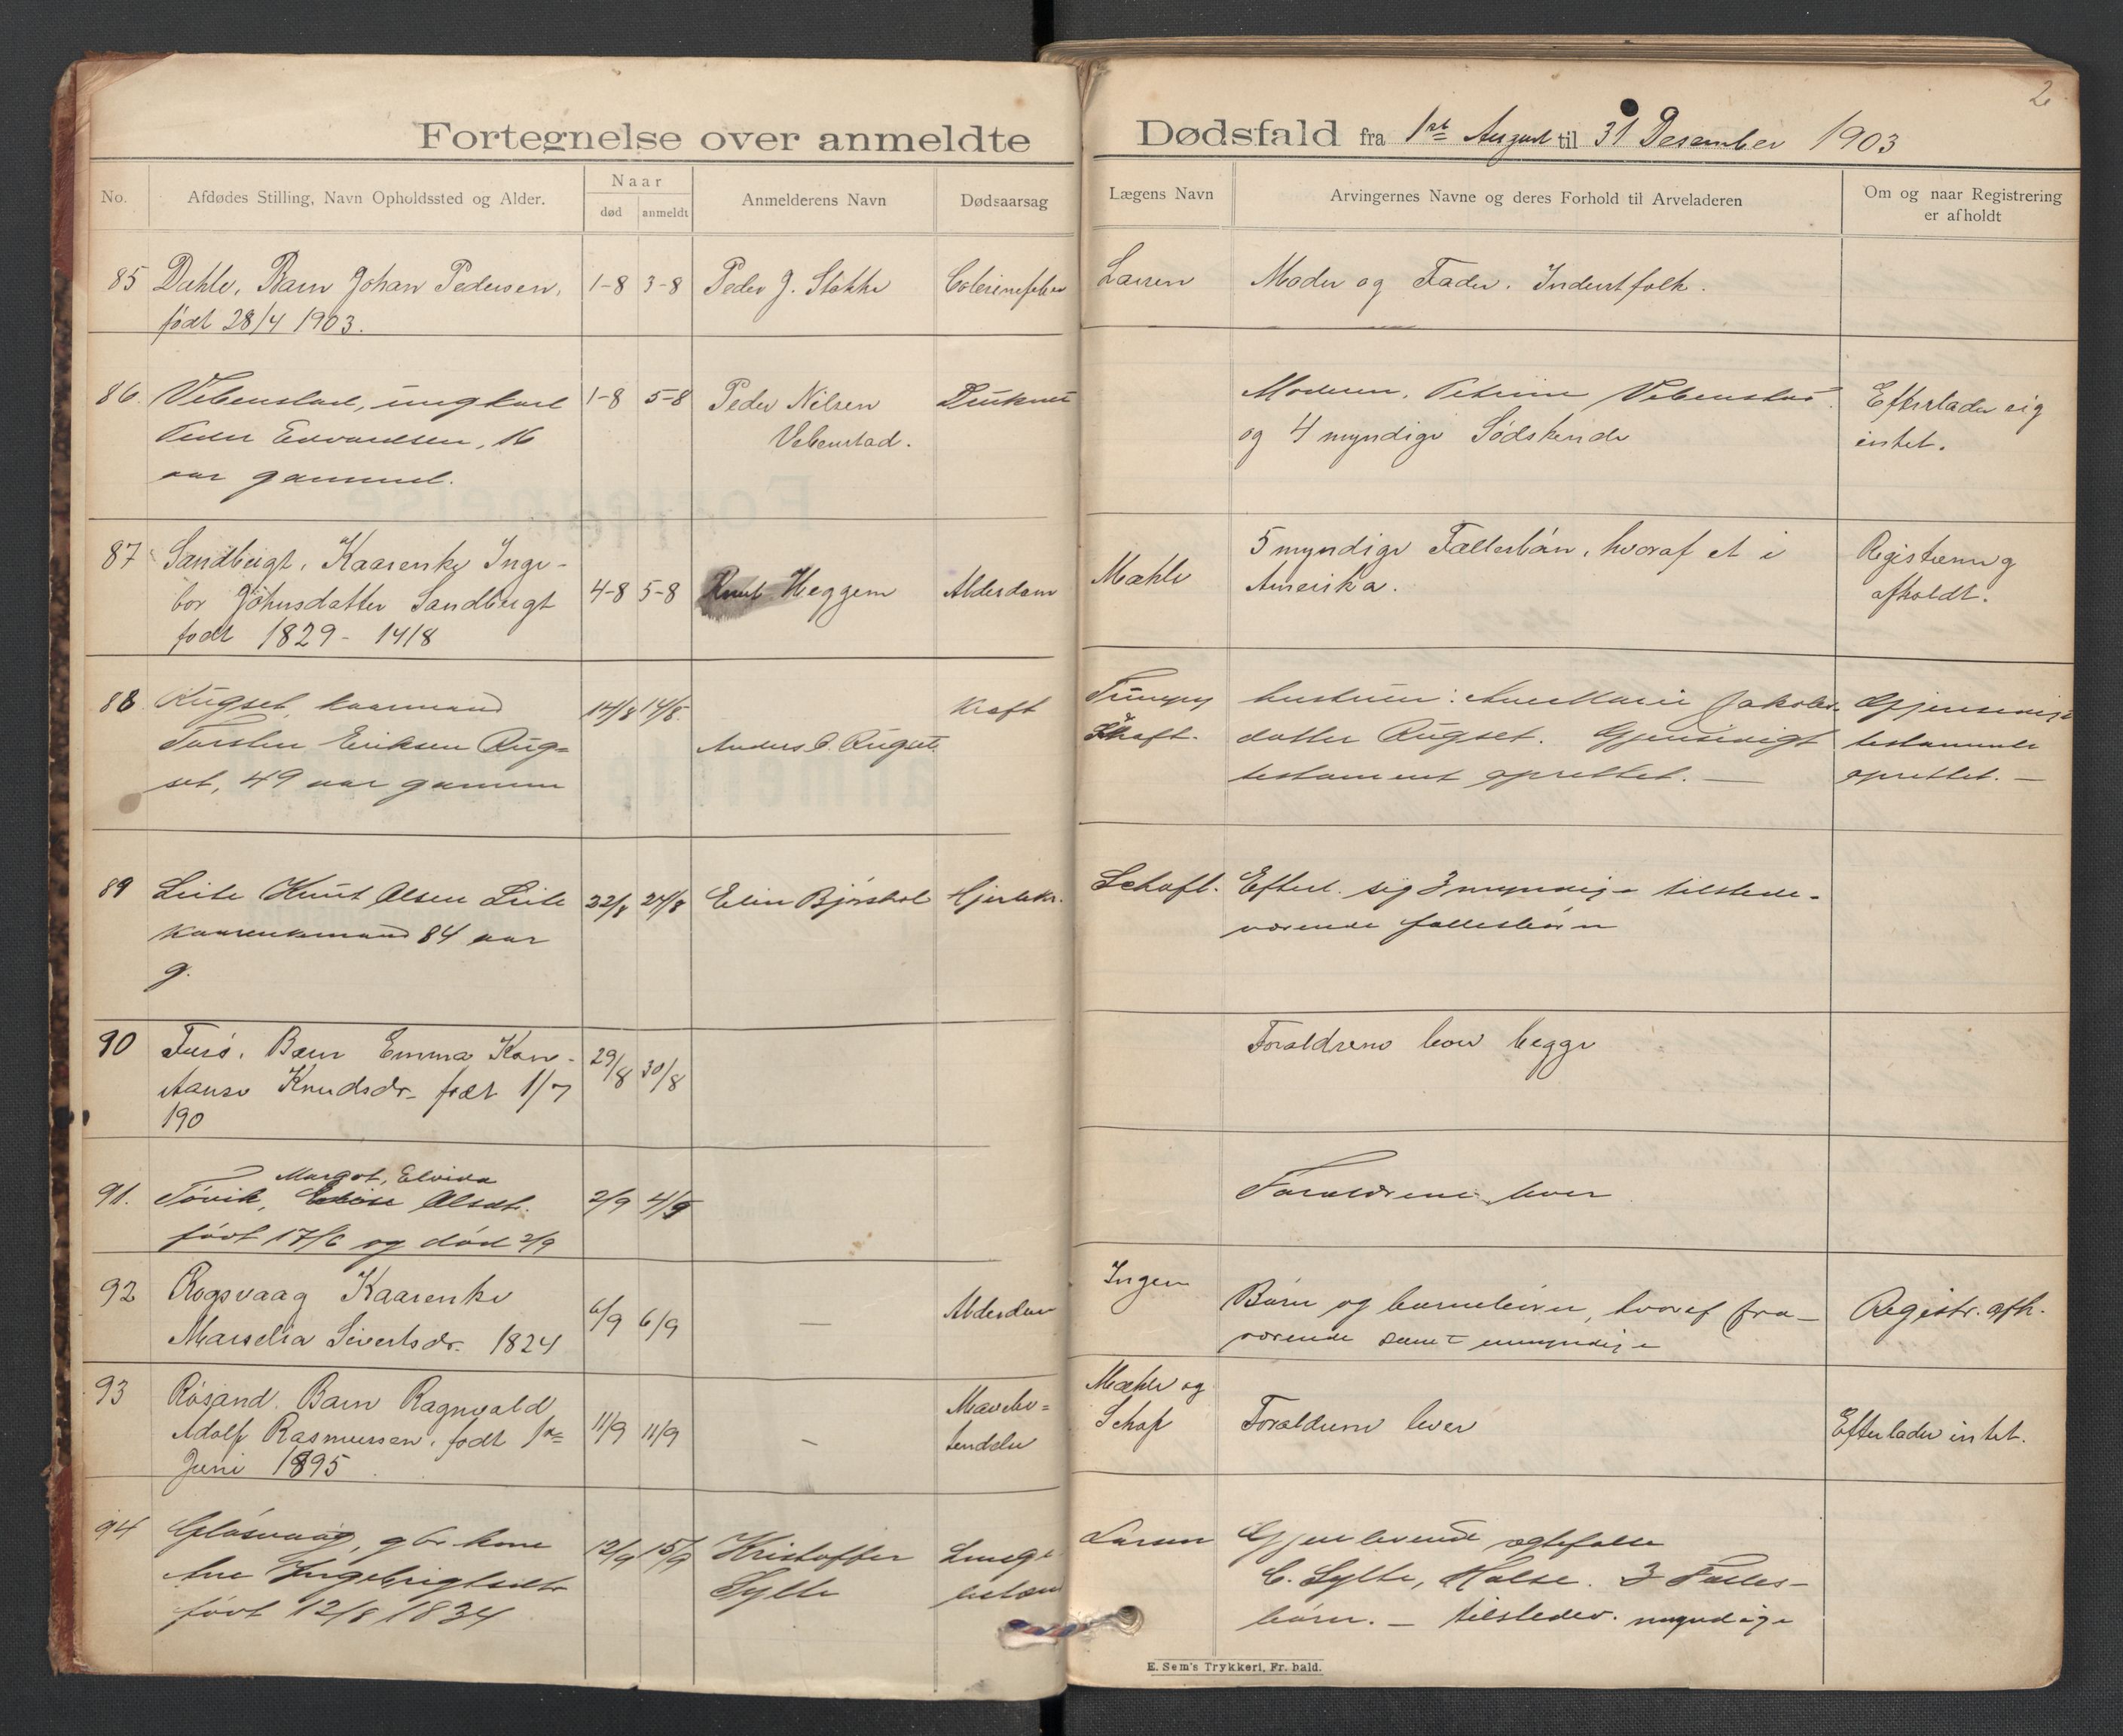 2
Fortegnelse over anmeldte Dødsfald fra 1ste August til 31 Desember 1903
No.
Afdødes Stilling, Navn Opholdssted og Alder.
Naar
død
anmeldt
Anmelderens Navn
Dødsaarsag
Lægens Navn
Arvingernes Navne og deres Forhold til Arveladeren
Om og naar Registrering
er afholdt
85 Dahle, Barn Johan Pedersen,
født 28/4 1903.
1-8 3-8
Peder J. Stokke
Larsen
Moder og Fader. Inderstfolk.
86. Vebenstad, ungkarl
Peder Edvardsen, 16
aar gammel.
1-8 5-8
Peder Nilsen
Vebenstad.
Druknet
Moderen, Petrine Vebenstad
og 4 myndige Södskende
Efterlader sig
intet.
87 Sandbugt, Kaarenke Inge-
bor Johnsdatter Sandbugt
født 1829 - 14/8
4-8 5-8
Knut Heggem
Alderdom
Mæhle
5 myndige Fællesbörn, hvoraf et i
Amerika.
Registrering
afholdt.
88. Rugset, kaarmand
Torsten Eriksen Rug=
set, 49 aar gammel
14/8 14/8.
Anders O. Rugset.
Kræft
Schaft.
hustruen: Ane Marie Jakobs-
datter Rugset. Gjensidigt
testament oprettet. —
Gjensidigt
testamente
oprettet. —
89 Leite Knut Olsen Leite
Kaarenkemand 84 aar
g.
22/8 24/8
Elin Bjørshol
Hjertekr.
Schaft.
Efterl. sig 3 myndige tilstede-
værende fællesbörn
90 Barn Emma Kon-
stanse Knudsdr. født 1/7
190
29/8 30/8
Forældrene lever begge
91. Tövik, Margot, Elvida Olsdt.
født 17/6 og död 2/9
2/9 4/9
Forældrene lever
92 Rogsvaag Kaarenke
Marselia Sivertsdr. 1824
6/9 6/9
—
Alderdom
Ingen
Börn og barnebörn, hvoraf fra-
værende samt umyndige
Registr. afh.
93 Rösand. Barn Ragnvald
Adolf Rasmussen, født 1ste
Juni 1895
11/9 11/9
—
Mæhle og
Schaft
Forældrene lever
Efterlader intet.
94 gbr kone
Ane Ingebrigtsdtr
født 12/8 1834
12/9 15/9
Kristoffer
Sylte
Larsen
Gjenlevende ægtefælle
C. Sylte, Halse. 3 Fælles-
börn. — tilstedev. myndige
E. Sem's Trykkeri, Fr.hald.